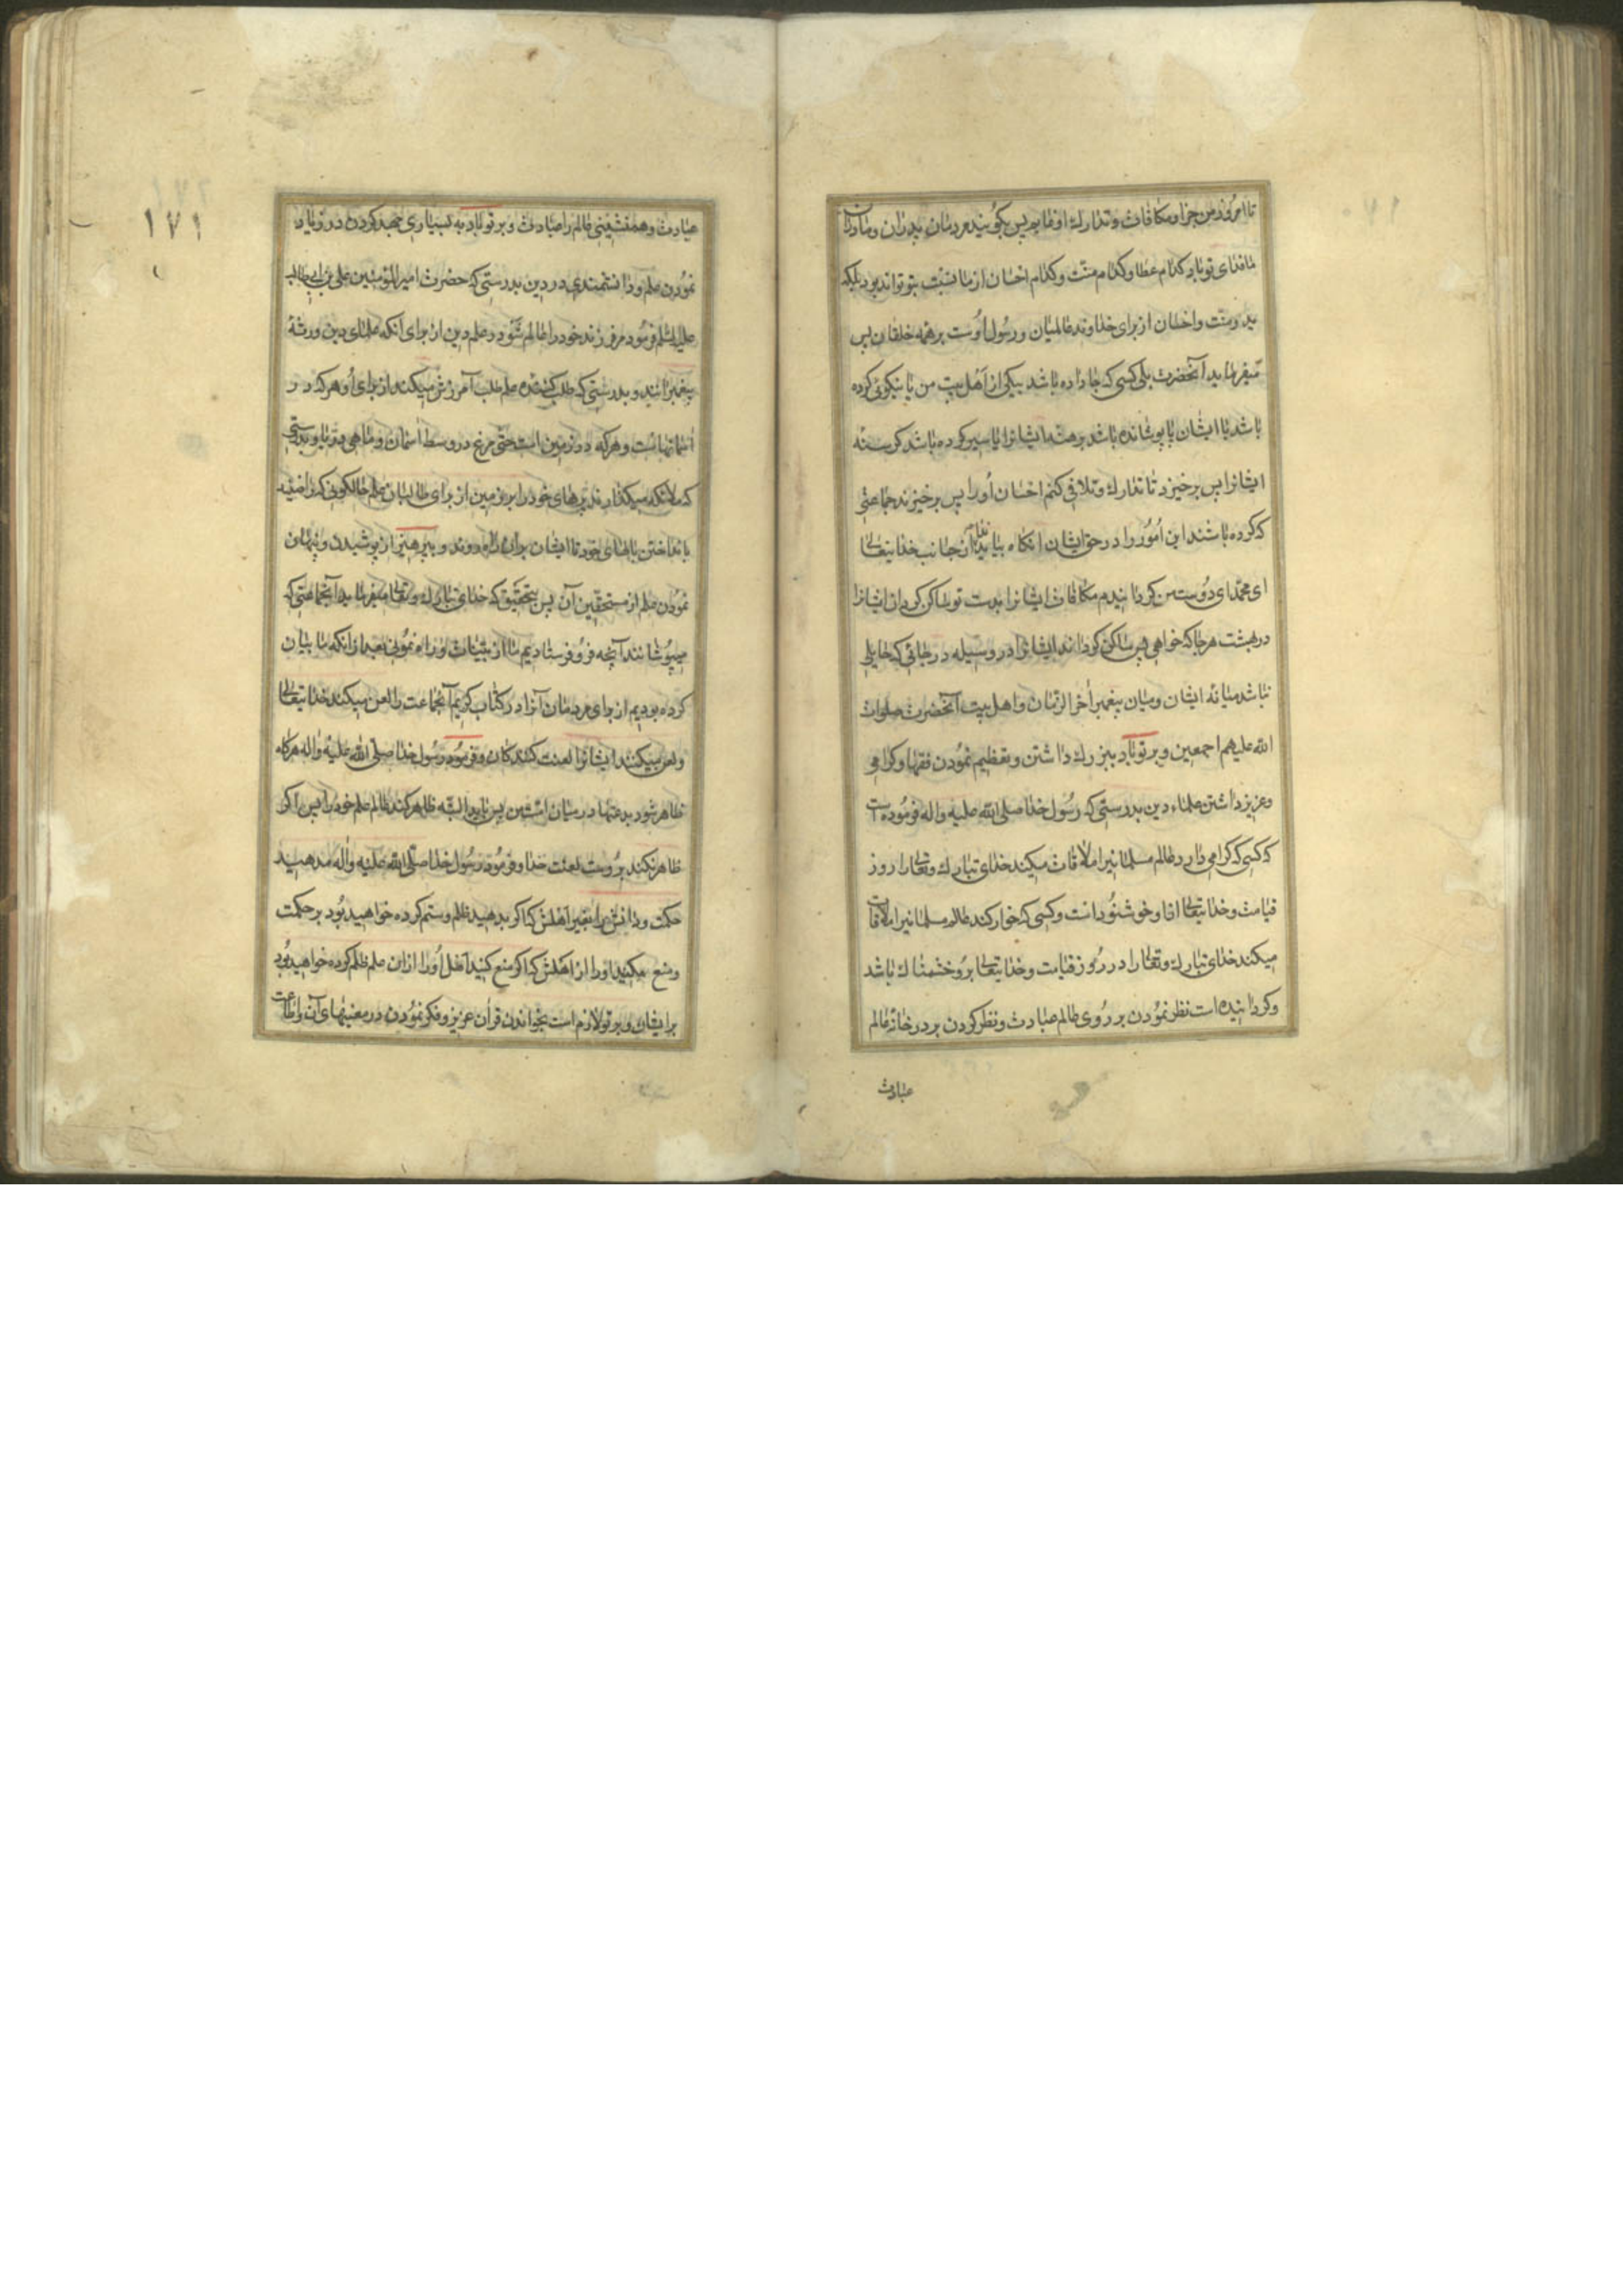 تا امروز من جزا و مکافات و تدارك او نمایم پس بکویند مردمان پدران و مادران
ما فدای تو باد کدام عطا و کدام منّت و کدام احسان از ما نسبت بتو تواند بود بلکه
ید و منّت و احسان از برای خداوند عالمیان و رسول اوست بر همه خلقان پس
میفرماید آنحضرت بلی کسی که جا داده باشد بیکی از اهل بیت من یا نیکوئی کرده
باشد با ایشان یا پوشانده باشد برهنه ایشانرا یا سیر کرده باشد کرسنه
ایشانرا پس برخیزد تا تدارك و تلافی کنم احسان او را پس برخیزند جماعتی
که کرده باشند این امور را در حق ایشان انکاه بیاید ندا از جانب خدایتعالی
ای محمد ای دوست من کردانیدم مکافات ایشانرا بدست تو ساکن کردان ایشانرا
در بهشت هر جا که خواهی پس ساکن کرداند ایشانرا در وسیله در جائی که حایلی
نباشد میانه ایشان و میان پیغمبر آخر الزمان و اهل بیت آنحضرت صلوات
الله علیهم اجمعین و بر تو باد ببزرك داشتن و تعظیم نمودن فقها و کرامی
و عزیز داشتن علماء دین بدرستی که رسول خدا صلی الله علیه واله فرموده است
که کسی که کرامی دارد عالم مسلمانیرا ملاقات میکند خدای تبارك و تعالی را روز
قیامت و خدایتعالی از او خوشنود است و کسی که خوار کند عالم مسلمانیرا ملاقات
میکند خدای تبارك و تعالی را در روز قیامت و خدایتعالی برو خشمناك باشد
و کردانیده است نظر نمودن بر روی عالم عبادت و نظر کردن بر در خانه عالم
عبادت
۱۷۱
عبادت و همنشینی عالم را عبادت و بر تو باد به بسیاری جهد کردن در زیاد
نمودن علم و دانشمندی در دین بدرستی که حضرت امیر المؤمنین علی بن ابی طالب
علیه السلم فرمود مر فرزند خود را عالم شو در علم دین از برای آنکه علمای دین ورثهٔ
پیغمبرانند و بدرستی که طلب کننده علم طلب آمرزش میکند از برای او هر که در
آسمانهاست و هر که در زمین است حتی مرغ در وسط آسمان و ماهی در دریا و بدرستی
که ملائکه میکذارند پرهای خود را بر زمین از برای طالبان علم حالکونی که راضیند
بانداختن بالهای خود تا ایشان بران راه روند و بپرهیز از پوشیدن و پنهان
نمودن علم از مستحقین آن پس بتحقیق که خدای تبارك و تعالی میفرماید آنجماعتی که
میپوشانند آنچه فرو فرستادیم ما از بیّنات و راه نمونی بعد از انکه ما بیان
کرده بودیم از برای مردمان آنرا در کتاب کریم آنجماعت را لعن میکند خدایتعالی
و لعن میکنند ایشانرا لعنت کنندکان و فرمود رسول خدا صلّی الله علیه واله هرکاه
ظاهر شود بدعتها در میان امت من پس باید البته ظاهر کند عالم علم خود را پس اکر
ظاهر نکند بروست لعنت خدا و فرمود رسول خدا صلّی الله علیه واله مدهید
حکمت و دانش را بغیر اهلش که اکر بدهید ظلم و ستم کرده خواهید بود بر حکمت
و منع مکنید او را از اهلش که اکر منع کنید اهل او را ازان علم ظلم کرده خواهید بود
بر ایشان و بر تو لازم است بخواندن قران عزیز و فکر نمودن در معنیهای آن و اطاعت